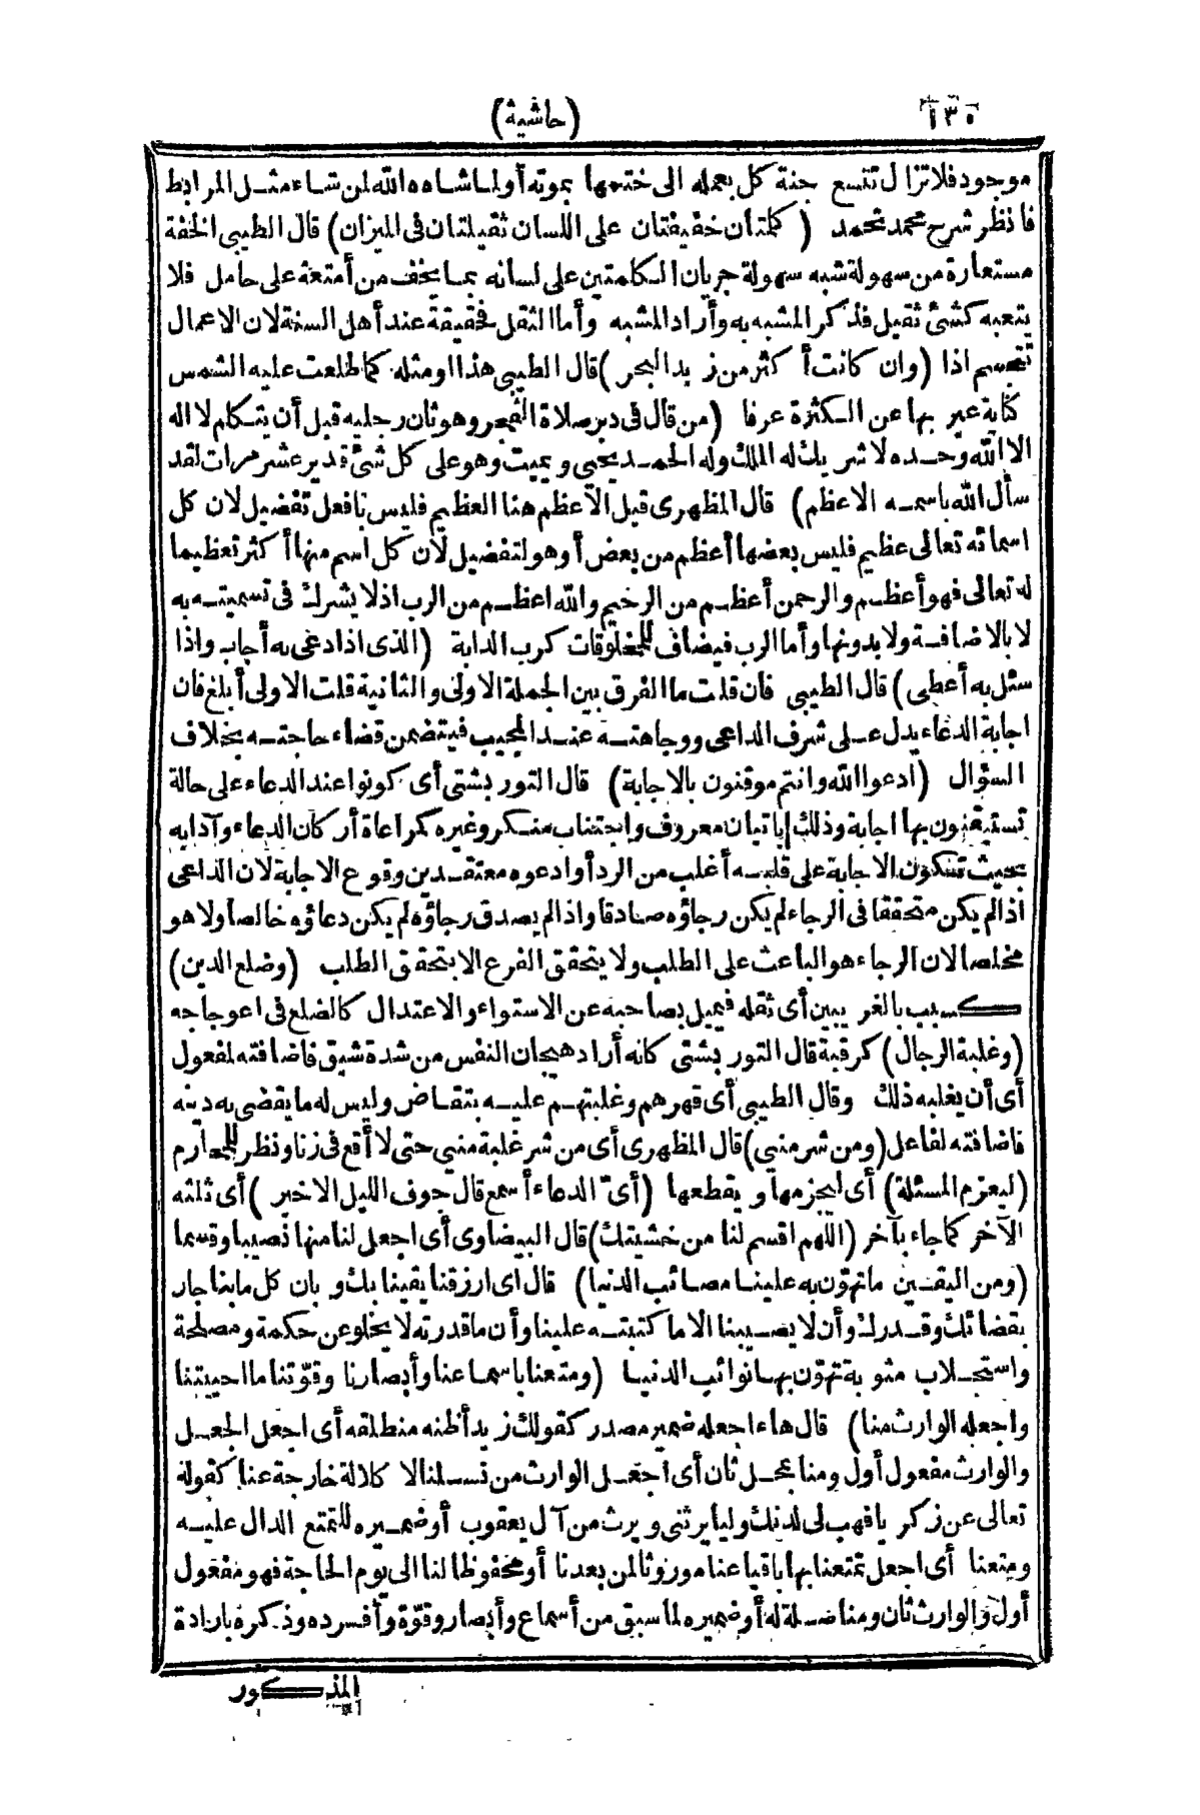 ١٣٠
(حاشية)
موجود فلا تزال تتسع جنة كل بعمله الى ختمها بموته أو لما شاءه الله لمن شاء مثل المرابط
فانظر شرح محمد محمد (كلمتان خفيفتان على اللسان ثقيلتان فى الميزان) قال الطيبى الخفة
مستعارة من سهولة شبه سهولة جريان الكلمتين على لسانه بما يخف من أمتعة على حامل فلا
يتعبه كشئ ثقيل فذكر المشبه به وأراد المشبه وأما الثقل فحقيقة عند أهل السنة لان الاعمال
تتجسم اذا (وان كانت أكثر من زبد البحر) قال الطيبى هذا ومثله كما طلعت عليه الشمس
كناية عبر بها عن الكثرة عرفا (من قال فى دبر صلاة الفجر وهو ثان رجليه قبل أن يتكلم لا اله
الا الله وحده لا شريك له الملك وله الحمد يحيى ويميت وهو على كل شئ قدير عشر مرات لقد
سأل الله باسمه الاعظم) قال المظهرى قيل الاعظم هنا العظيم فليس بافعل تفضيل لان كل
اسمائه تعالى عظيم فليس بعضها أعظم من بعض أو هو لتفضيل لان كل اسم منها أكثر تعظيما
له تعالى فهو أعظم والرحمن أعظم من الرحيم والله اعظم من الرب اذ لا يشرك فى تسميته به
لا بالاضافة ولا بدونها وأما الرب فيضاف للمخلوقات كرب الدابة (الذى اذا دعى به أجاب واذا
سئل به أعطى) قال الطيبى فان قلت ما الفرق بين الجملة الاولى والثانية قلت الاولى أبلغ فان
اجابة الدعاء يدل على شرف الداعى ووجاهته عند المجيب فيتضمن قضاء حاجته بخلاف
السؤال (ادعوا الله وانتم موقنون بالاجابة) قال التوربشتى أى كونوا عند الدعاء على حالة
تستيقنون بها اجابة وذلك باتيان معروف واجتناب منكر وغيره كمراعاة أركان الدعاء وآدابه
بحيث تكون الاجابة على قلبه أغلب من الرد أو ادعوه معتقدين وقوع الاجابة لان الداعى
اذا لم يكن متحققا فى الرجاء لم يكن رجاؤه صادقا واذا لم يصدق رجاؤه لم يكن دعاؤه خالصا ولا هو
مخلصا لان الرجاء هو الباعث على الطلب ولا يتحقق الفرع الا بتحقق الطلب (وضلع الدين)
كسبب بالغريبين أى ثقله فيميل بصاحبه عن الاستواء والاعتدال كالضلع فى اعوجاجه
(وغلبة الرجال) كرقبة قال التوربشتى كانه أراد هيجان النفس من شدة شبق فاضافته لمفعول
أى أن يغلبه ذلك وقال الطيبى أى قهرهم وغلبتهم عليه بتقاض وليس له ما يقضى به دينه
فاضافته لفاعل (ومن شر منيى) قال المظهرى أى من شر غلبة منيى حتى لا أقع فى زنا ونظر للمحارم
(ليعزم المسئلة) أى ليجزمها ويقطعها (أىّ الدعاء أسمع قال جوف الليل الاخير) أى ثلثه
الآخر كما جاء بآخر (اللهم اقسم لنا من خشيتك) قال البيضاوى أى اجعل لنا منها نصيبا وقسما
(ومن اليقين ما تهوّن به علينا مصائب الدنيا) قال أى ارزقنا يقينا بك وبان كل ما بنا جار
بقضائك وقدرك وأن لا يصيبنا الا ما كتبته علينا وأن ما قدرته لا يخلو عن حكمة ومصلحة
واستجلاب مثوبة تهوّن بها نوائب الدنيا (ومتعنا باسماعنا وأبصارنا وقوّتنا ما احييتنا
واجعله الوارث منا) قال هاء اجعله ضمير مصدر كقولك زيد أظنه منطلقه أى اجعل الجعل
والوارث مفعول أول ومنا بمحل ثان أى اجعل الوارث من نسلنا لا كلالة خارجة عنا كقوله
تعالى عن زكريا فهب لى لدنك وليا يرثنى ويرث من آل يعقوب أو ضميره للتمتع الدال عليه
ومتعنا أى اجعل تمتعنا بها باقيا عنا موروثا لمن بعدنا أو محفوظا لنا الى يوم الحاجة فهو مفعول
أول والوارث ثان ومنا صلة له أو ضميره لما سبق من أسماع وأبصار وقوّة وأفرده وذكره بارادة
المذكور